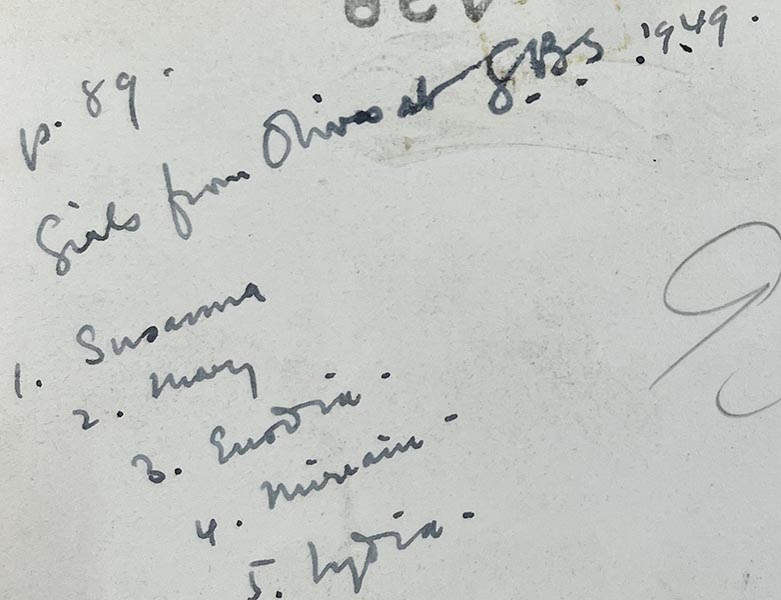 p. 89.
Girls from Olives at G.B.S. 1949.
1. Susanna
2. Mary
3. Euodia.
4. Miriam.
5. Lydia.